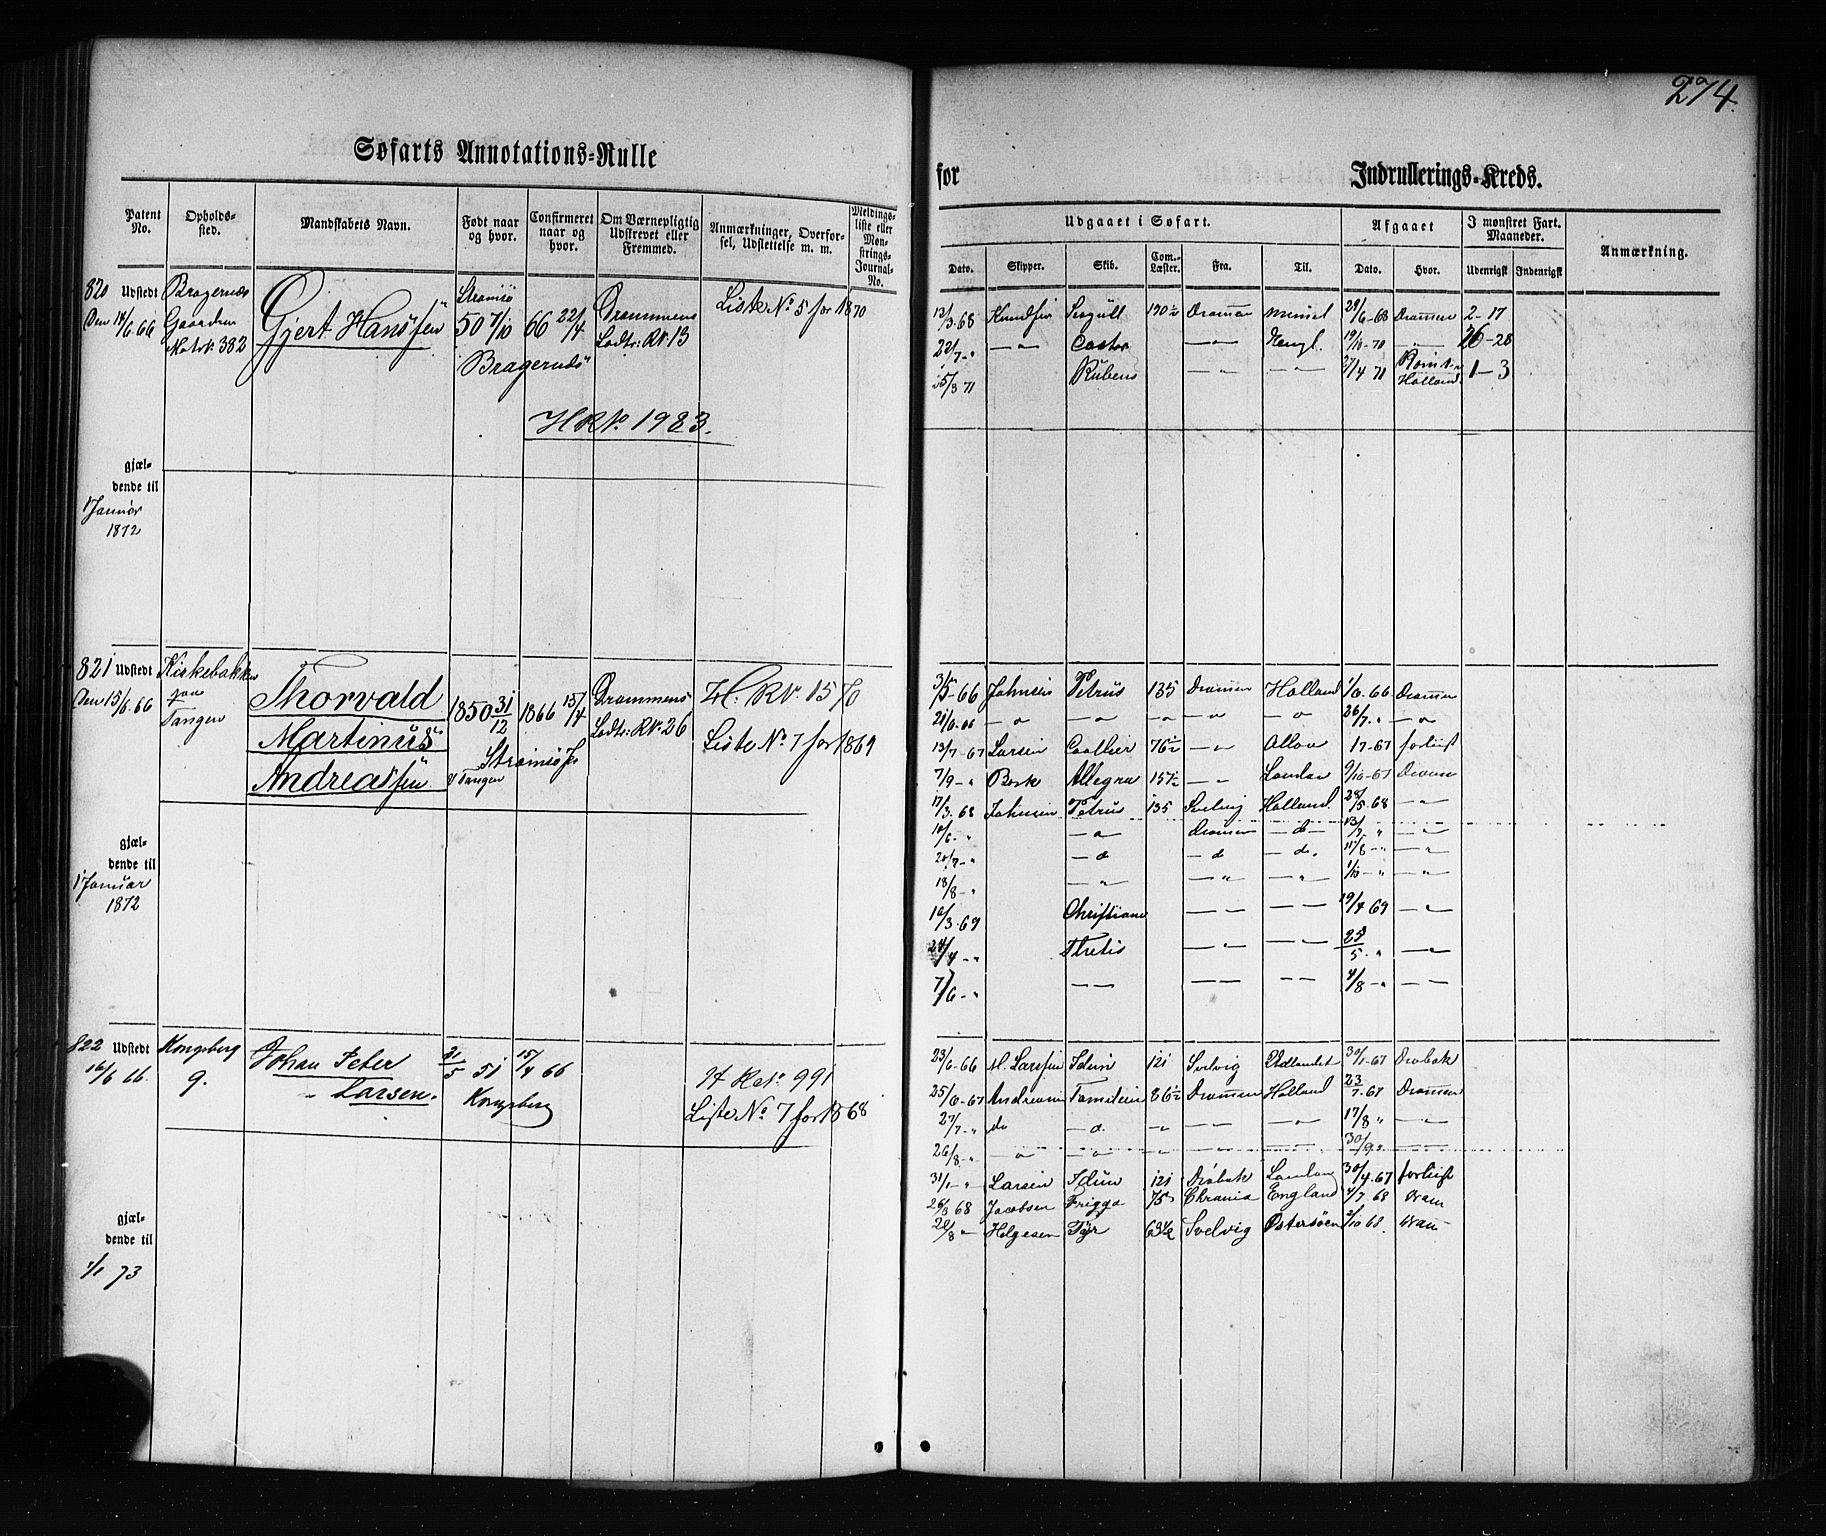 274.
Søfarts Annotations-Rulle
for Indrullerings-Kreds.
Patent No.
Opholds-sted.
Mandskabets Navn.
Født naar og hvor.
Confirmeret naar og hvor.
Om Værnepligtig Udskrevet eller Fremmed.
Anmærkninger, Overførsel, Udslettelse m. m.
Meldings-liste eller Mønstrings-Journal-No.
Udgaaet i Søfart.
Afgaaet
I mønstret Fart. Maaneder.
Anmærkning.
Dato. Skipper. Skib. Com.-Læster. Fra. Til. Dato. Hvor. Udenrigsk Indenrigsk
820 Udstedt
Den 14/6 66
Bragernæs
Gaarden
Matrk. 382
Gjert Hanssen
Strømsø
50 7/10
Bragernæs
66 22/4
Drammens
Lodts: RN. 13
Liste No 5 for 1870
HRN. 1983.
gjæl-
dende til
1 Januar
1872
13/3 68 Knudsen 170½ Drammen 29/6 68 Drammen 2-17
22/7 " — " — Castor — " — Engl. 19/10 70 — " — 26-28
15/3 71 Rubens — " — — " — 27/4 71 Holland 1-3
821 Udstedt
Den 15/6 66
Kirkebakken
paa
Tangen
Thorvald
Martinus
Andreassen
1850 31/12
Strømsø
& Tangen
1866 15/4
Drammens
Lodts: RN. 26
H. RN. 1576
Liste No 7 for 1869
gjæl-
dende til
1 Januar
1872
31/5 66 Johnsen Petrus 135 Drammen Holland 1/6 66 Drammen
21/6 66 — " — — " — — " — — " — — " — 26/7 " — " —
13/7 67 Larsen 76½ — " — Alloa 17-67 forliist
7/9 " Bork Allegra 157½ — " — London 9/10 67 Dramn
17/3 68 Johnsen Petrus 135 Svelvig Holland 28/5 68 — " —
10/6 " — " — Drammen — d — 13/7 " — " —
20/7 " — d — d — d. 11/8 " — " —
18/8 " — " — — " — — " — 1/10 " — " —
10/3 69 Christiane — " — — " — 19/4 69 — " —
24/4 " Thetis — " — — " — 25/5 " — " —
7/6 " — — — — — — 4/8 " — —
822 Udstedt
16/6 66.
Kongsberg
9.
Johan Peter
Larsen.
21/5 51
Kongsberg
15/4 66
H RN. 991
Liste No 7 for 1868
gjæl-
dende til
1/1 73
23/6 66 M. Larssen Idun 121 Svelvig Udlandet 30/1 67 Drøbak
25/6 67 86½ Drammen Holland 23/7 67 Drammen
27/7 " do — d. — " — — — " — 17/8 " — —
26/8 " — " — — " — — — — — — 30/9 " — —
31/1 " Larsen Idun 121 Drøbak London 30/4 67 forliist
26/3 68 Jacobsen Frigga 75 Chrania England 4/7 68 Dram
20/8 " Helgesen Tyr 63½ Svelvig Østersøen 2/10 68. Dram